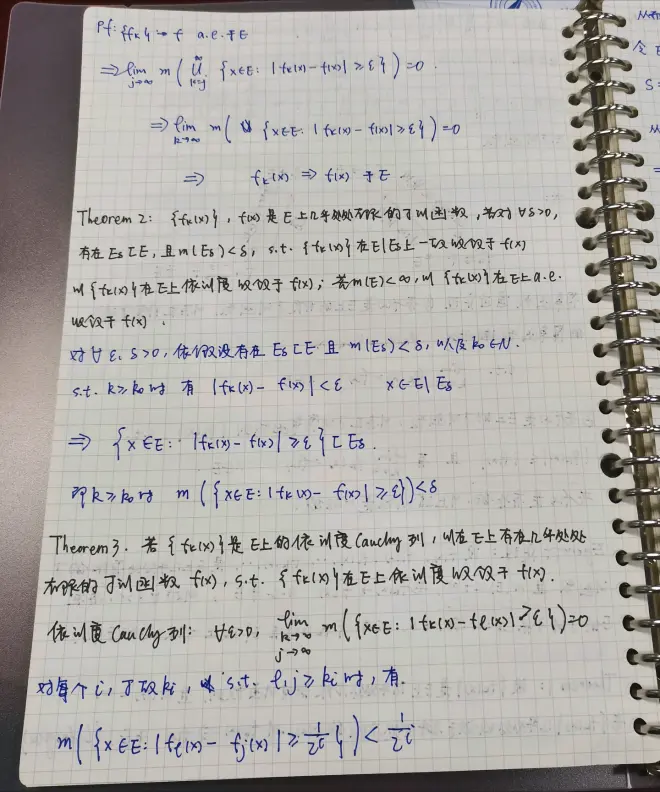 Pf: {fk} → f a.e. 于E
⇒ lim_{j→∞} m( ∪_{k=j}^{∞} {x∈E: |fk(x) - f(x)| ≥ ε} ) = 0.
⇒ lim_{k→∞} m( {x∈E: |fk(x) - f(x)| ≥ ε} ) = 0
⇒ fk(x) ⇒ f(x) 于E.
Theorem 2: {fk(x)}, f(x) 是E上几乎处处有限的可测函数, 若对∀δ>0,
存在Eδ⊂E, 且m(Eδ)<δ, s.t. {fk(x)}在E\Eδ上一致收敛于f(x)
则{fk(x)}在E上依测度收敛于f(x); 若m(E)<∞, 则{fk(x)}在E上a.e.
收敛于f(x).
对∀ε, δ>0, 依假设存在Eδ⊂E 且 m(Eδ)<δ, 以及k0∈N.
s.t. k≥k0时 有 |fk(x) - f(x)| < ε x∈E\Eδ
⇒ {x∈E: |fk(x) - f(x)| ≥ ε} ⊂ Eδ.
即k≥k0时 m({x∈E: |fk(x) - f(x)| ≥ ε}) < δ
Theorem 3. 若{fk(x)}是E上的依测度Cauchy列, 则在E上存在几乎处处
有限的可测函数f(x), s.t. {fk(x)}在E上依测度收敛于f(x).
依测度Cauchy列: ∀ε>0, lim_{k→∞ j→∞} m({x∈E: |fk(x) - fl(x)| ≥ ε}) = 0
对每个i, 可取ki, s.t. l,j≥ki时, 有.
m({x∈E: |fl(x) - fj(x)| ≥ 1/2^i}) < 1/2^i
从而
令E
S=
从